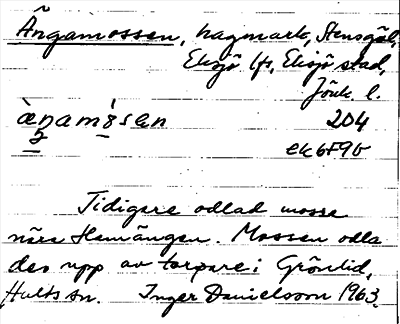 Ängamossen, hagmark, Stensgöl,
Eksjö lfs, Eksjö stad,
Jönk. l.
204
ek6F9b
Tidigare odlad mosse
nära Hemängen. Mossen odla
des upp av torpare i Grönlid,
Hults sn. Inger Danielsson 1963.